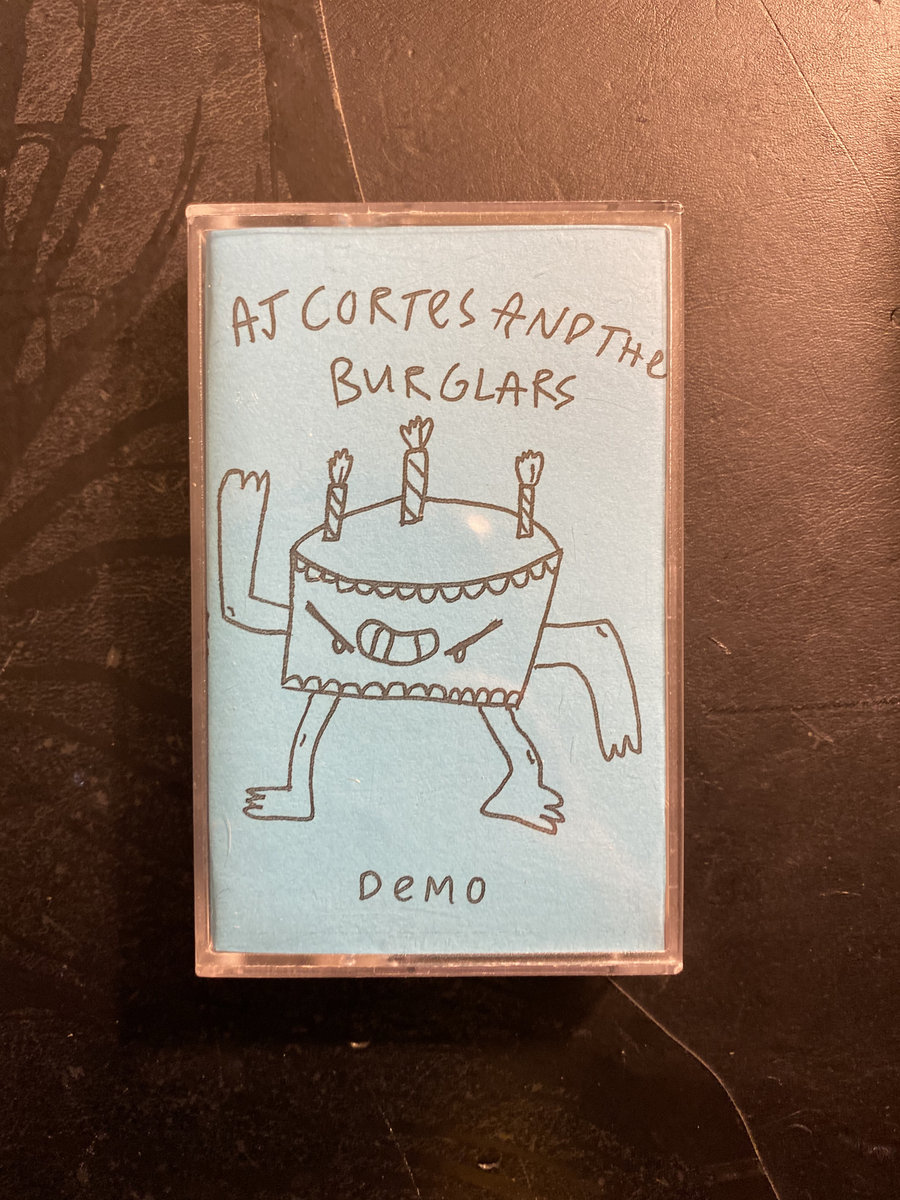 AJ CORTes AND THe
BURGLARS
DeMO